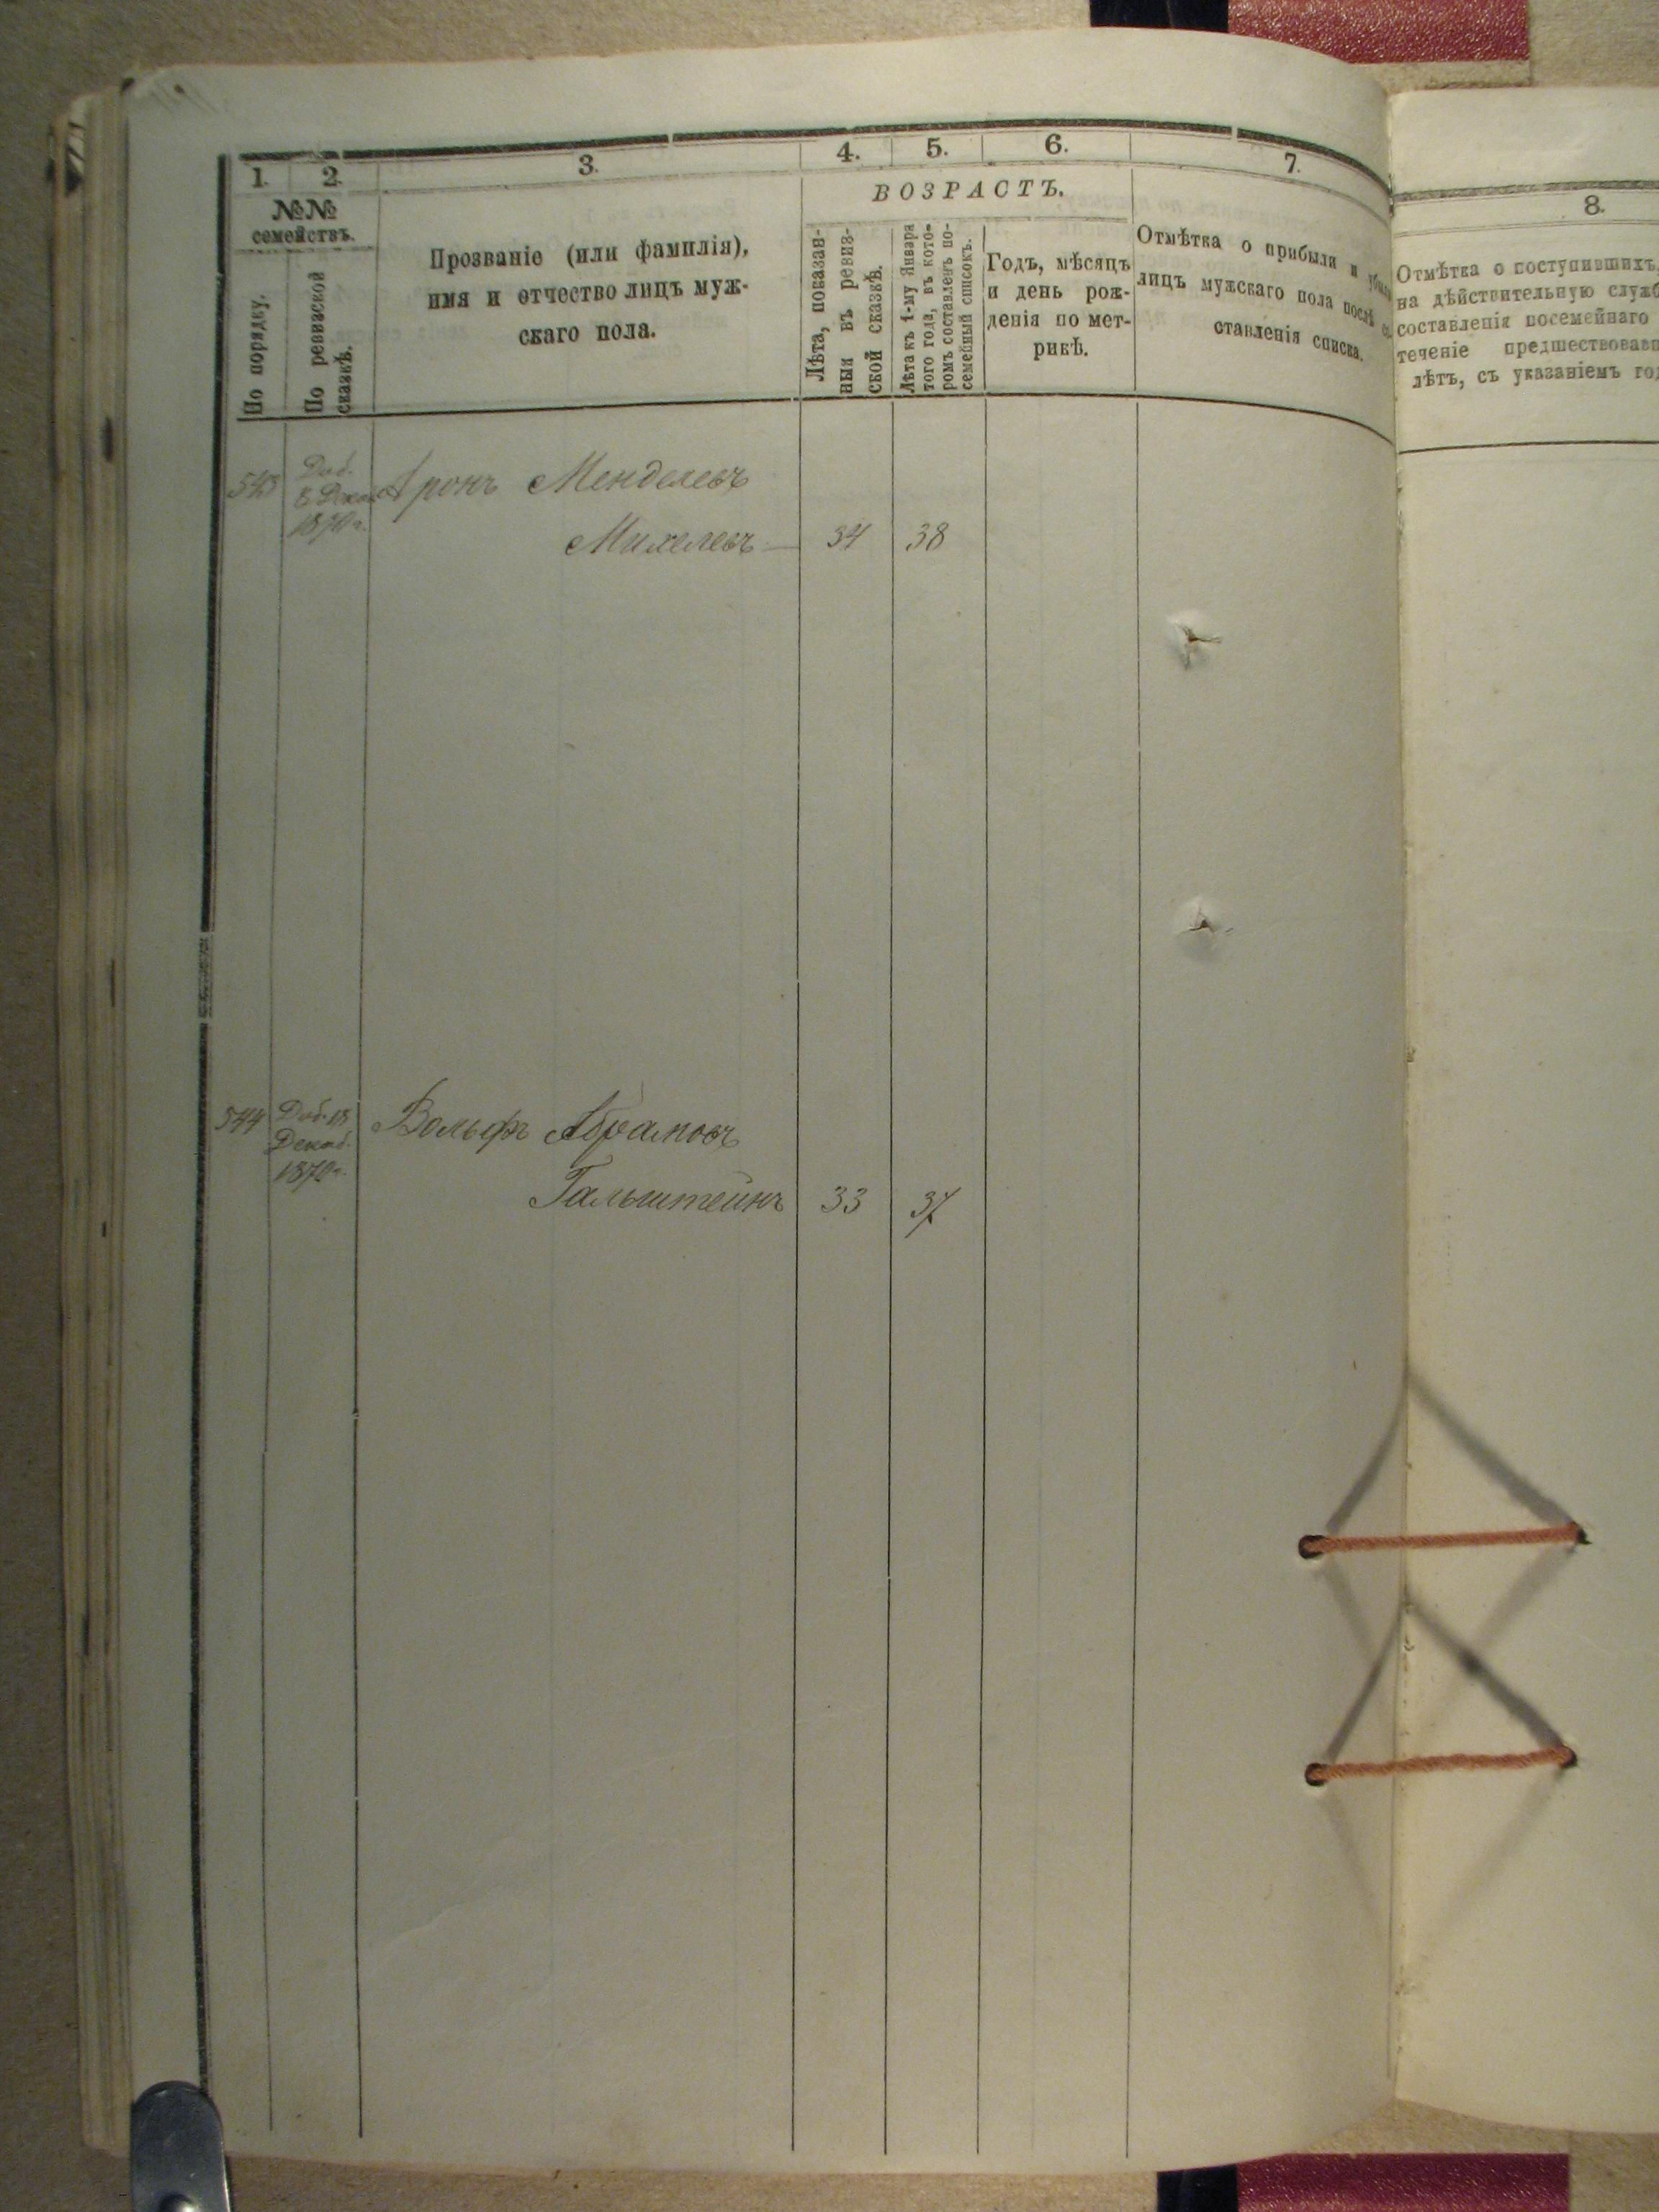 1.
2.
3.
4.
5.
6.
7.
8.
№№
семействъ.
По порядку.
По ревизской
сказкѣ.
Прозваніе (или фамилія),
имя и отчество лицъ муж-
скаго пола.
ВОЗРАСТЪ.
Лѣта, показан-
ныя въ ревиз-
ской сказкѣ.
Лѣта къ 1-му Января
того года, въ кото-
ромъ составленъ по-
семейный списокъ.
Годъ, мѣсяцъ
и день рож-
денія по мет-
рикѣ.
Отмѣтка о прибыли и
лицъ мужскаго пола послѣ
ставленія списка.
Отмѣтка о поступившихъ
на дѣйствительную служб
составленія посемейнаго
теченіе предшествовавш
лѣтъ, съ указаніемъ год
543
Доб.
8 Дека
1870 г.
Аронъ Менделевъ
Михелевъ — 34 38
544
Доб. 18
Декаб.
1870 г.
Вольфъ Абрамовъ
Гальштейнъ 33 37